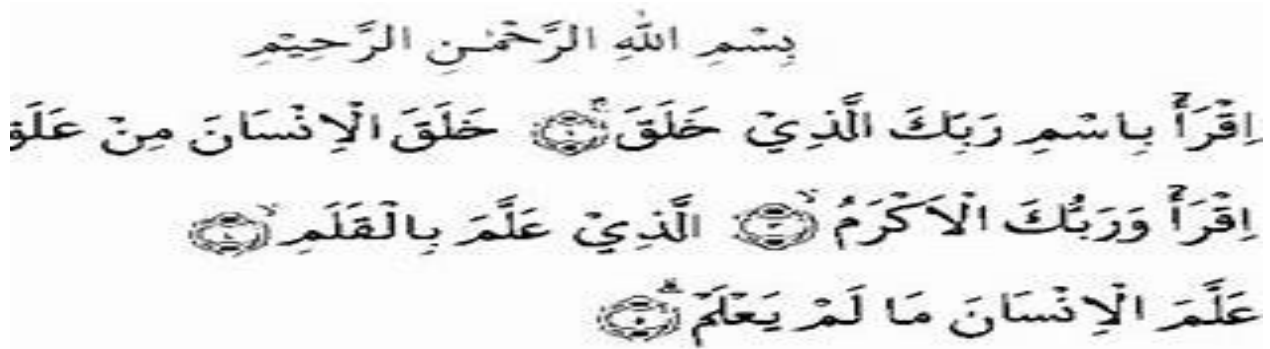 بِسْمِ اللهِ الرَّحْمٰنِ الرَّحِيْمِ
اِقْرَأْ بِاسْمِ رَبِّكَ الَّذِيْ خَلَقَۚ ۝١ خَلَقَ الْاِنْسَانَ مِنْ عَلَقٍ
اِقْرَأْ وَرَبُّكَ الْاَكْرَمُۙ ۝٣ الَّذِيْ عَلَّمَ بِالْقَلَمِۙ ۝٤
عَلَّمَ الْاِنْسَانَ مَا لَمْ يَعْلَمْۗ ۝٥